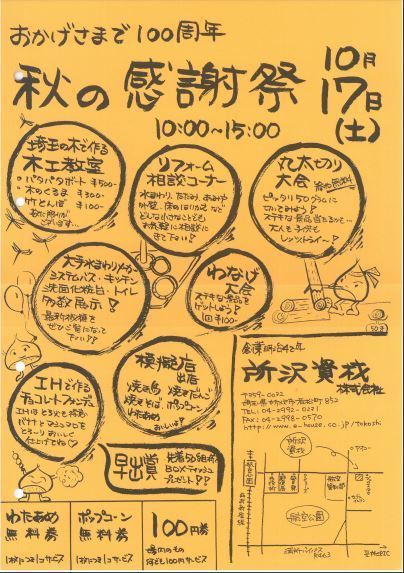 おかげさまで100周年
秋の感謝祭
10月
17日
(土)
10:00~15:00
埼玉の木で作る
木工教室
・パタパタボート ¥500-
・木のくるま ¥300-
・竹とんぼ ¥100-
リフォーム
相談コーナー
水まわり、たたみ、あみや
どんな小さなことでも
お気軽に相談に
きて下さい!
丸太切り
大会 参加無料
ピッタリ50グラムに
切ってみよう!
ステキな景品当たるかも…
大人も子供も
レッツトライー!
大手水まわりメーカー
システムバス・キッチン
洗面化粧台・トイレ
多数展示!
最新設備を
ぜひご覧になって
下さい!!
わなげ
大会
ステキな景品を
ゲットしよう!
1回 ¥100-
模擬店
出店
焼き鳥
焼きそば ポップコーン
わたあめ
おいしいよ!
IHで作る
チョコレートフォンデュ
バナナとマシュマロを
とろ〜りおいしく
仕上げてね♡
早出賞
先着50組様に
BOXティッシュ
プレゼント!!
50g
創業明治42年
所沢資材
株式会社
〒359-0032
TEL.04-2992-0231
FAX.04-2998-0570
所沢
航空公園
R463
わたあめ
無料券
1枚につき1コサービス
ポップコーン
無料券
1枚につき1コサービス
100円券
場内のもの
何でも100円サービス